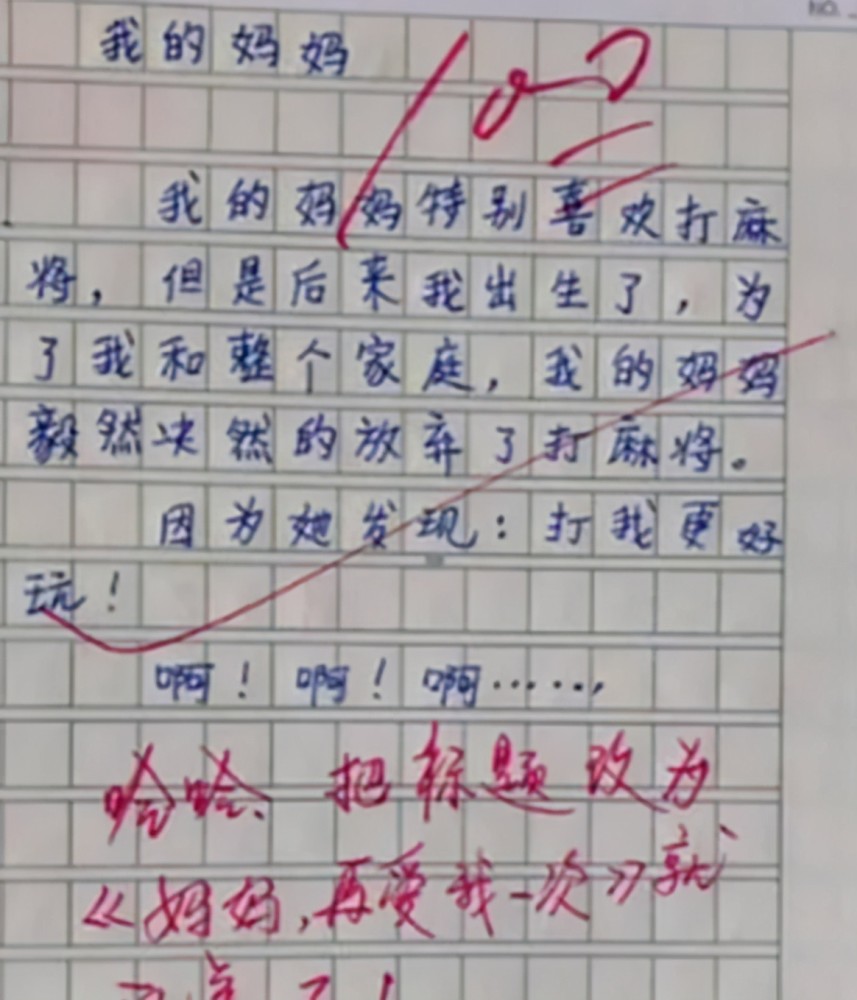 NO.
我的妈妈
100
我的妈妈特别喜欢打麻
将，但是后来我出生了，为
了我和整个家庭，我的妈妈
毅然决然的放弃了打麻将。
因为她发现：打我更好
玩！
啊！啊！啊……，
哈哈、把标题改为
《妈妈，再爱我一次》就
了！